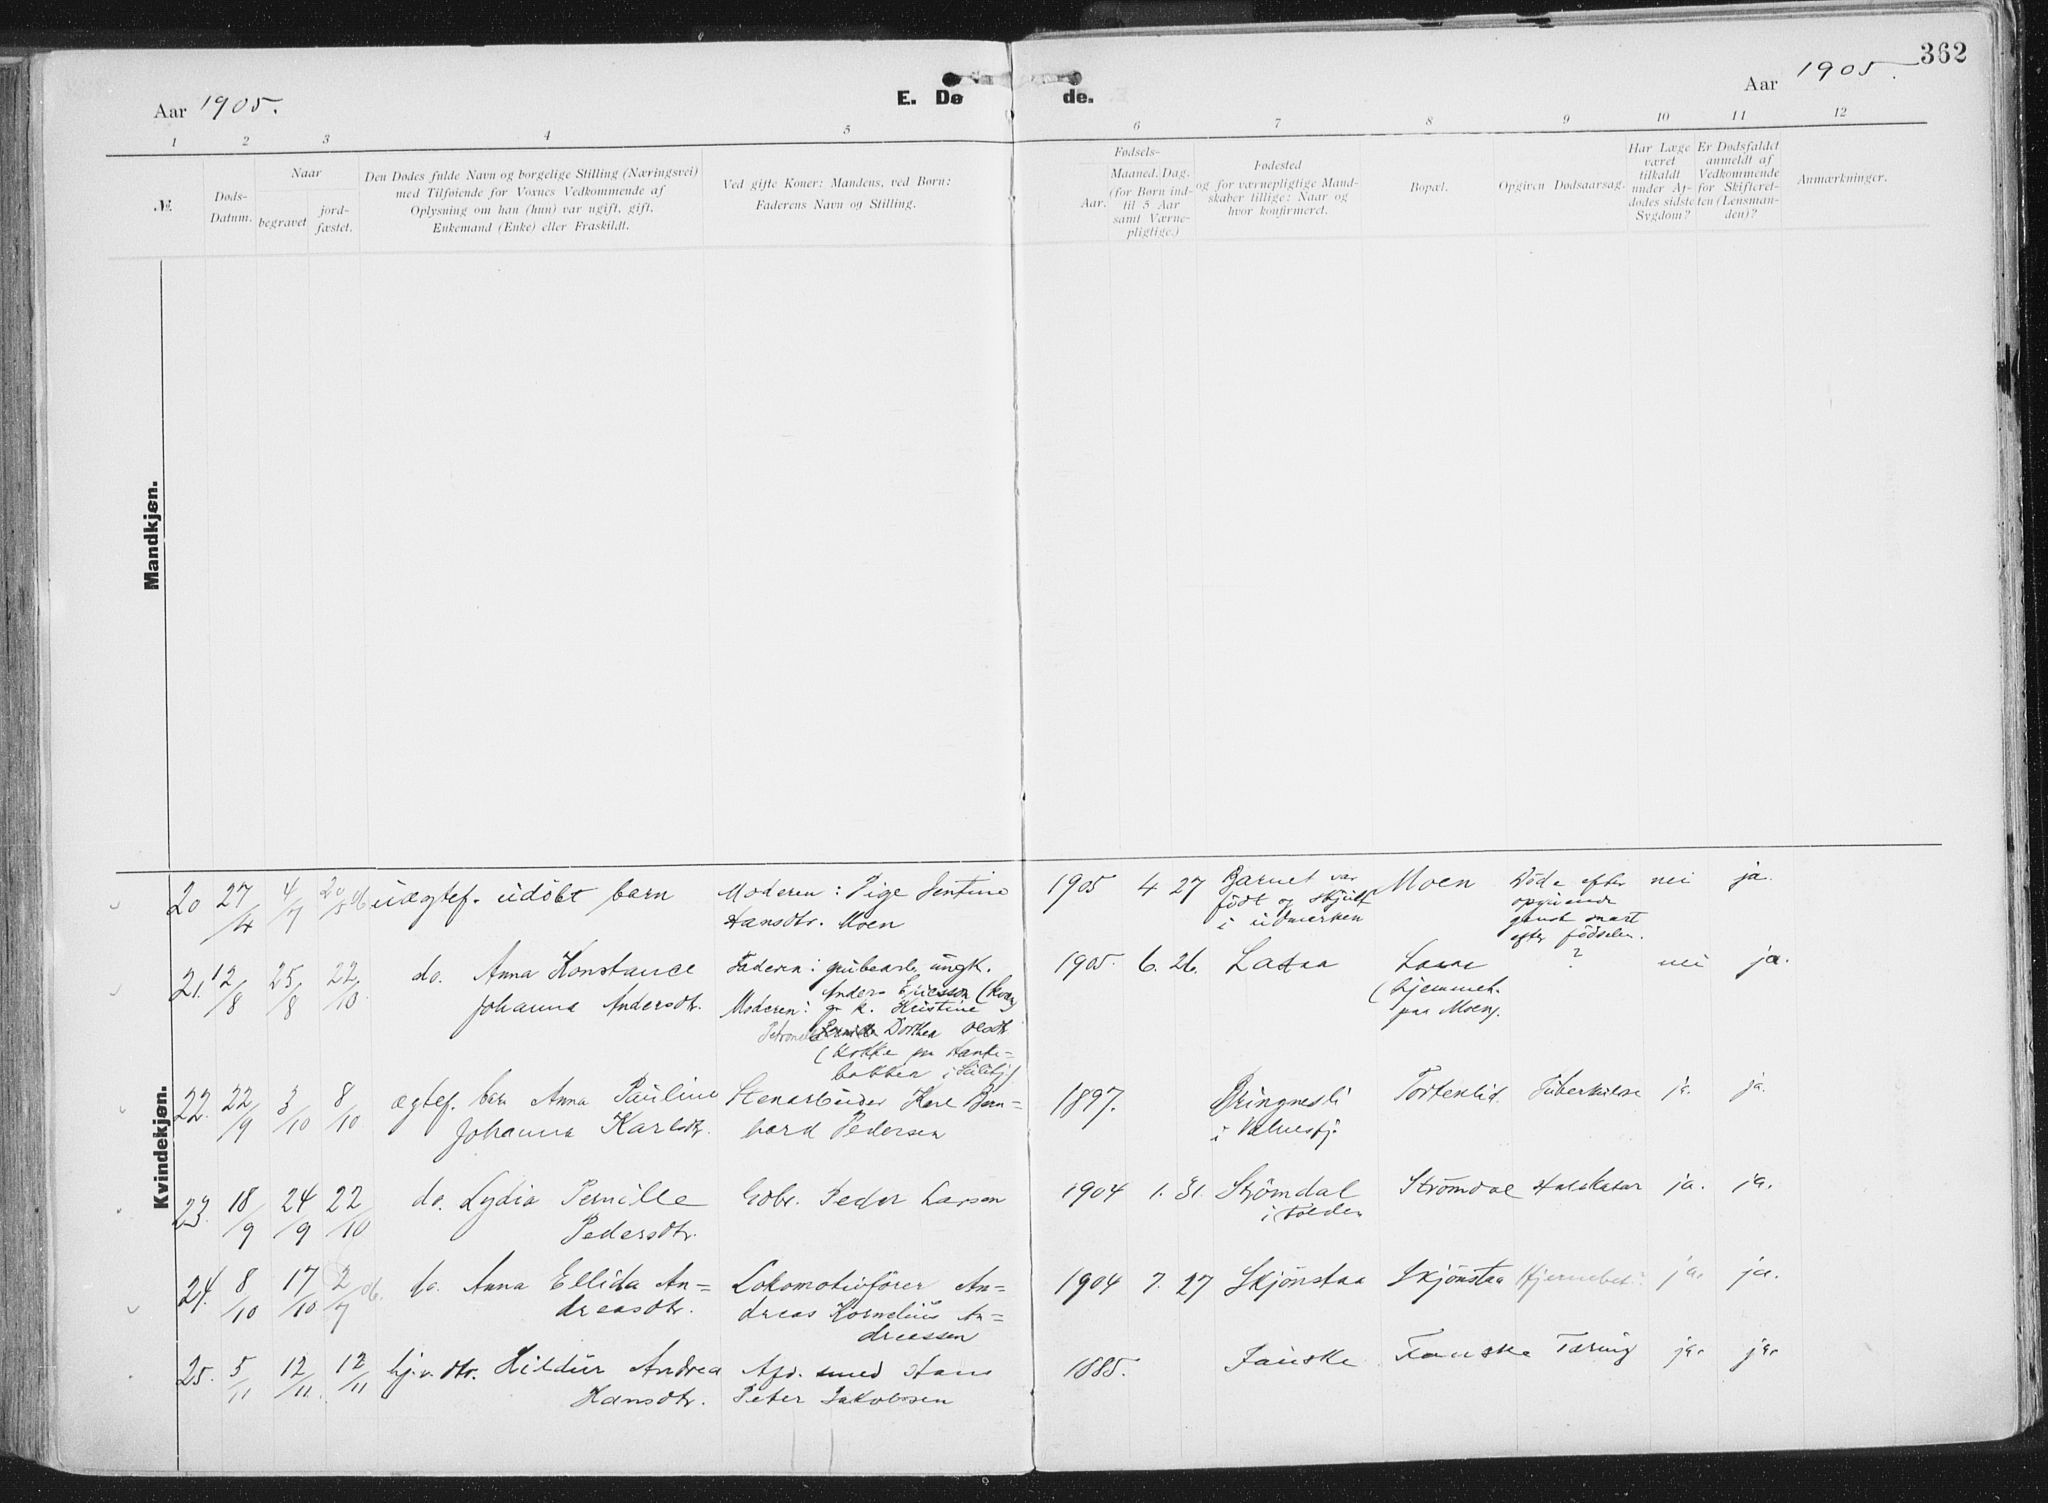 362
Aar 1905.
E. Døde.
Aar 1905.
1 2 3 4 5 6 7 8 9 10 11 12
№.
Døds-
Datum.
Naar
begravet
jord-
fæstet.
Den Dødes fulde Navn og borgelige Stilling (Næringsvei)
med Tilføiende for Voxnes Vedkommende af
Oplysning om han (hun) var ugift, gift,
Enkemand (Enke) eller Fraskildt.
Ved gifte Koner: Mandens, ved Børn:
Faderens Navn og Stilling.
Fødsels-
Aar.
Maaned. Dag.
(for Børn ind-
til 5 Aar
samt Værne-
pligtige.)
Fødested
og for værnepligtige Mand-
skaber tillige: Naar og
hvor konfirmeret.
Bopæl.
Opgiven Dødsaarsag.
Har Læge
været
tilkaldt
under Af-
dødes sidste
Sygdom?
Er Dødsfaldet
anmeldt af
Vedkommende
for Skifteret-
ten (Lensman-
den)?
Anmærkninger.
Mandkjøn.
Kvindekjøn.
20 27/4 4/7 20/5 06 uægtef. udöbt barn
Moderen: Pige Jentine
Hansdtr. Moen
1905 4 27
Barnet var
födt og skjult
i udmarken
Moen
Döde efter
opgivende
ganske snart
efter födselen.
nei ja.
21. 12/8 25/8 22/10 do. Anna Konstance
Johanna Andersdtr.
Faderen: grubearb. ungk.
Anders Ericsson
Moderen: k. Kristine
Petronelle Dorthea
(Kokke paa Hanke-
bakken i Sulitj.)
1905. 6. 26.
(hjemmeh.
paa Moen).
? nei ja.
22. 22/9 3/10 8/10 ægtef. barn Anna Pauline
Johanna Karlsdtr.
Stenarbeider Karl Bern-
hard Pedersen
1897.
i Valnesfj.
Tortenlid. Tuberkulose ja. ja.
23. 18/9 24/9 22/10 do. Lydia Pernille
Pedersdtr.
Gbr. Peder Larsen
1904 1. 31. Strömdal
i Solden
Strömdal Halskatar ja. ja.
24. 8/10 17/10 2/7 06. do. Anna Ellida An-
dreasdtr.
Lokomotivförer An-
dreas Kornelius An-
dreassen
1904 7. 27 Skjönstaa Skjönstaa Hjernebet. ja. ja.
25. 5/11 12/11 12/11 hj.v. dtr. Hildur Andrea
Hansdtr.
Afd. smed Hans
Peter Jakobssen
1885. Fauske Fauske Tæring ja. ja.